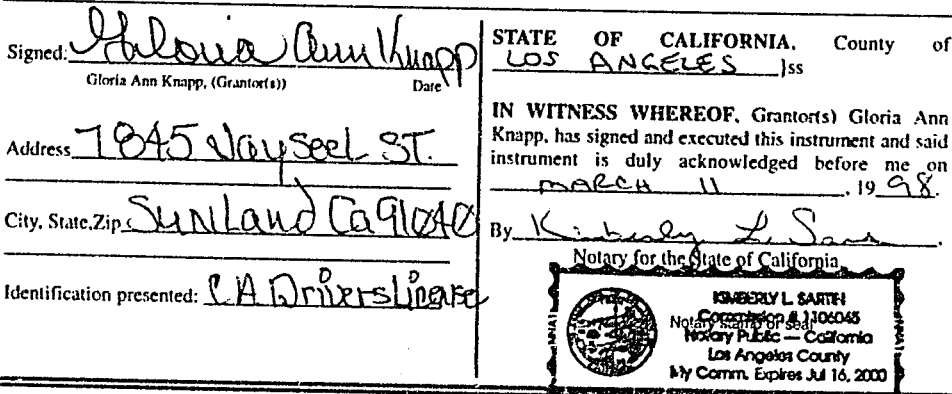 Signed: Gloria Ann Knapp
Gloria Ann Knapp, (Grantor(s)) Date
Address 7845 Nayseel ST.
City, State, Zip SunLand Ca 91040
Identification presented: CA Drivers License
STATE OF CALIFORNIA, County of
LOS ANGELES }ss
IN WITNESS WHEREOF, Grantor(s) Gloria Ann
Knapp, has signed and executed this instrument and said
instrument is duly acknowledged before me on
MARCH 11, 1998.
By Kimberly L. Sartin.
Notary for the State of California
Notary stamp or seal
KIMBERLY L. SARTIN
Commission # 1106045
Notary Public — California
Los Angeles County
My Comm. Expires Jul 16, 2000